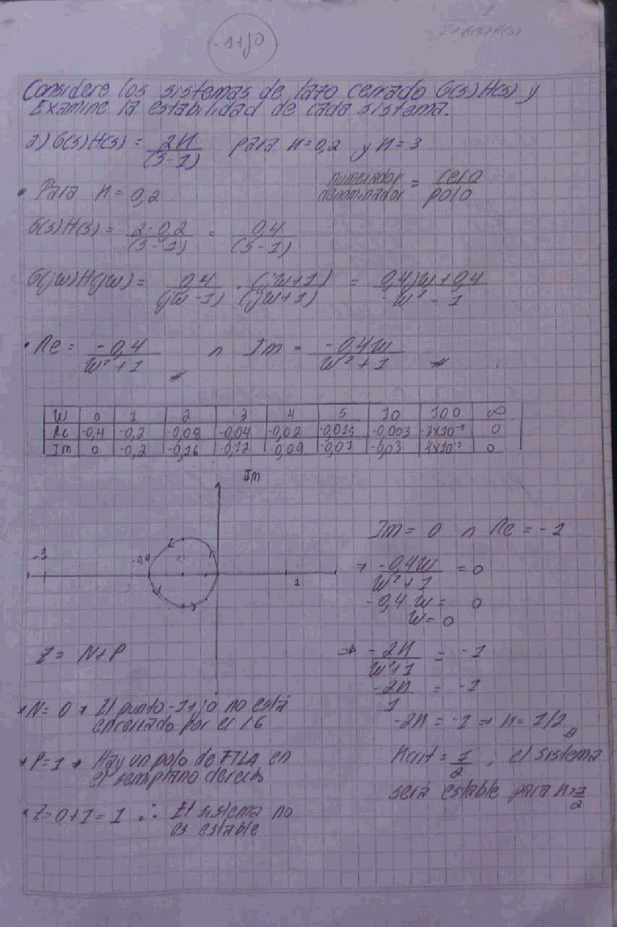 -1+j0
1
Considere los sistemas de lazo cerrado G(s)H(s) y
Examine la estabilidad de cada sistema.
a) G(s)H(s) = 2K/(S-1) para K=0,2 y K=3
numerador/denominador = cero/polo
• Para K = 0,2
G(s)H(s) = 2·0,2/(S-1) = 0,4/(S-1)
G(jw)H(jw) = 0,4/(jw-1) · (jw+1)/(jw+1) = 0,4jw+0,4/-w²-1
• Re = -0,4/w²+1 ∩ Im = -0,4w/w²+1
W 0 1 2 3 4 5 10 100 ∞
Re -0,4 -0,2 -0,08 -0,04 -0,02 -0,015 -0,003 0
Im 0 -0,2 -0,16 -0,12 0,09 -0,07 -0,03 0
Im
Im = 0 ∩ Re = -1
-0,4 1
→ -0,4w/w²+1 = 0
-0,4w = 0
w = 0
Z = N+P
⇒ -2K/w²+1 = -1
-2K/1 = -1
-2K = -1 → K = 1/2
• N = 0 → El punto -1+j0 no está
encerrado por el LG
Kcrit = 1/2, el sistema
será estable para K>1/2
• P=1 → Hay un polo de FTLA en
el semiplano derech
• Z=0+1=1 ∴ El sistema no
es estable